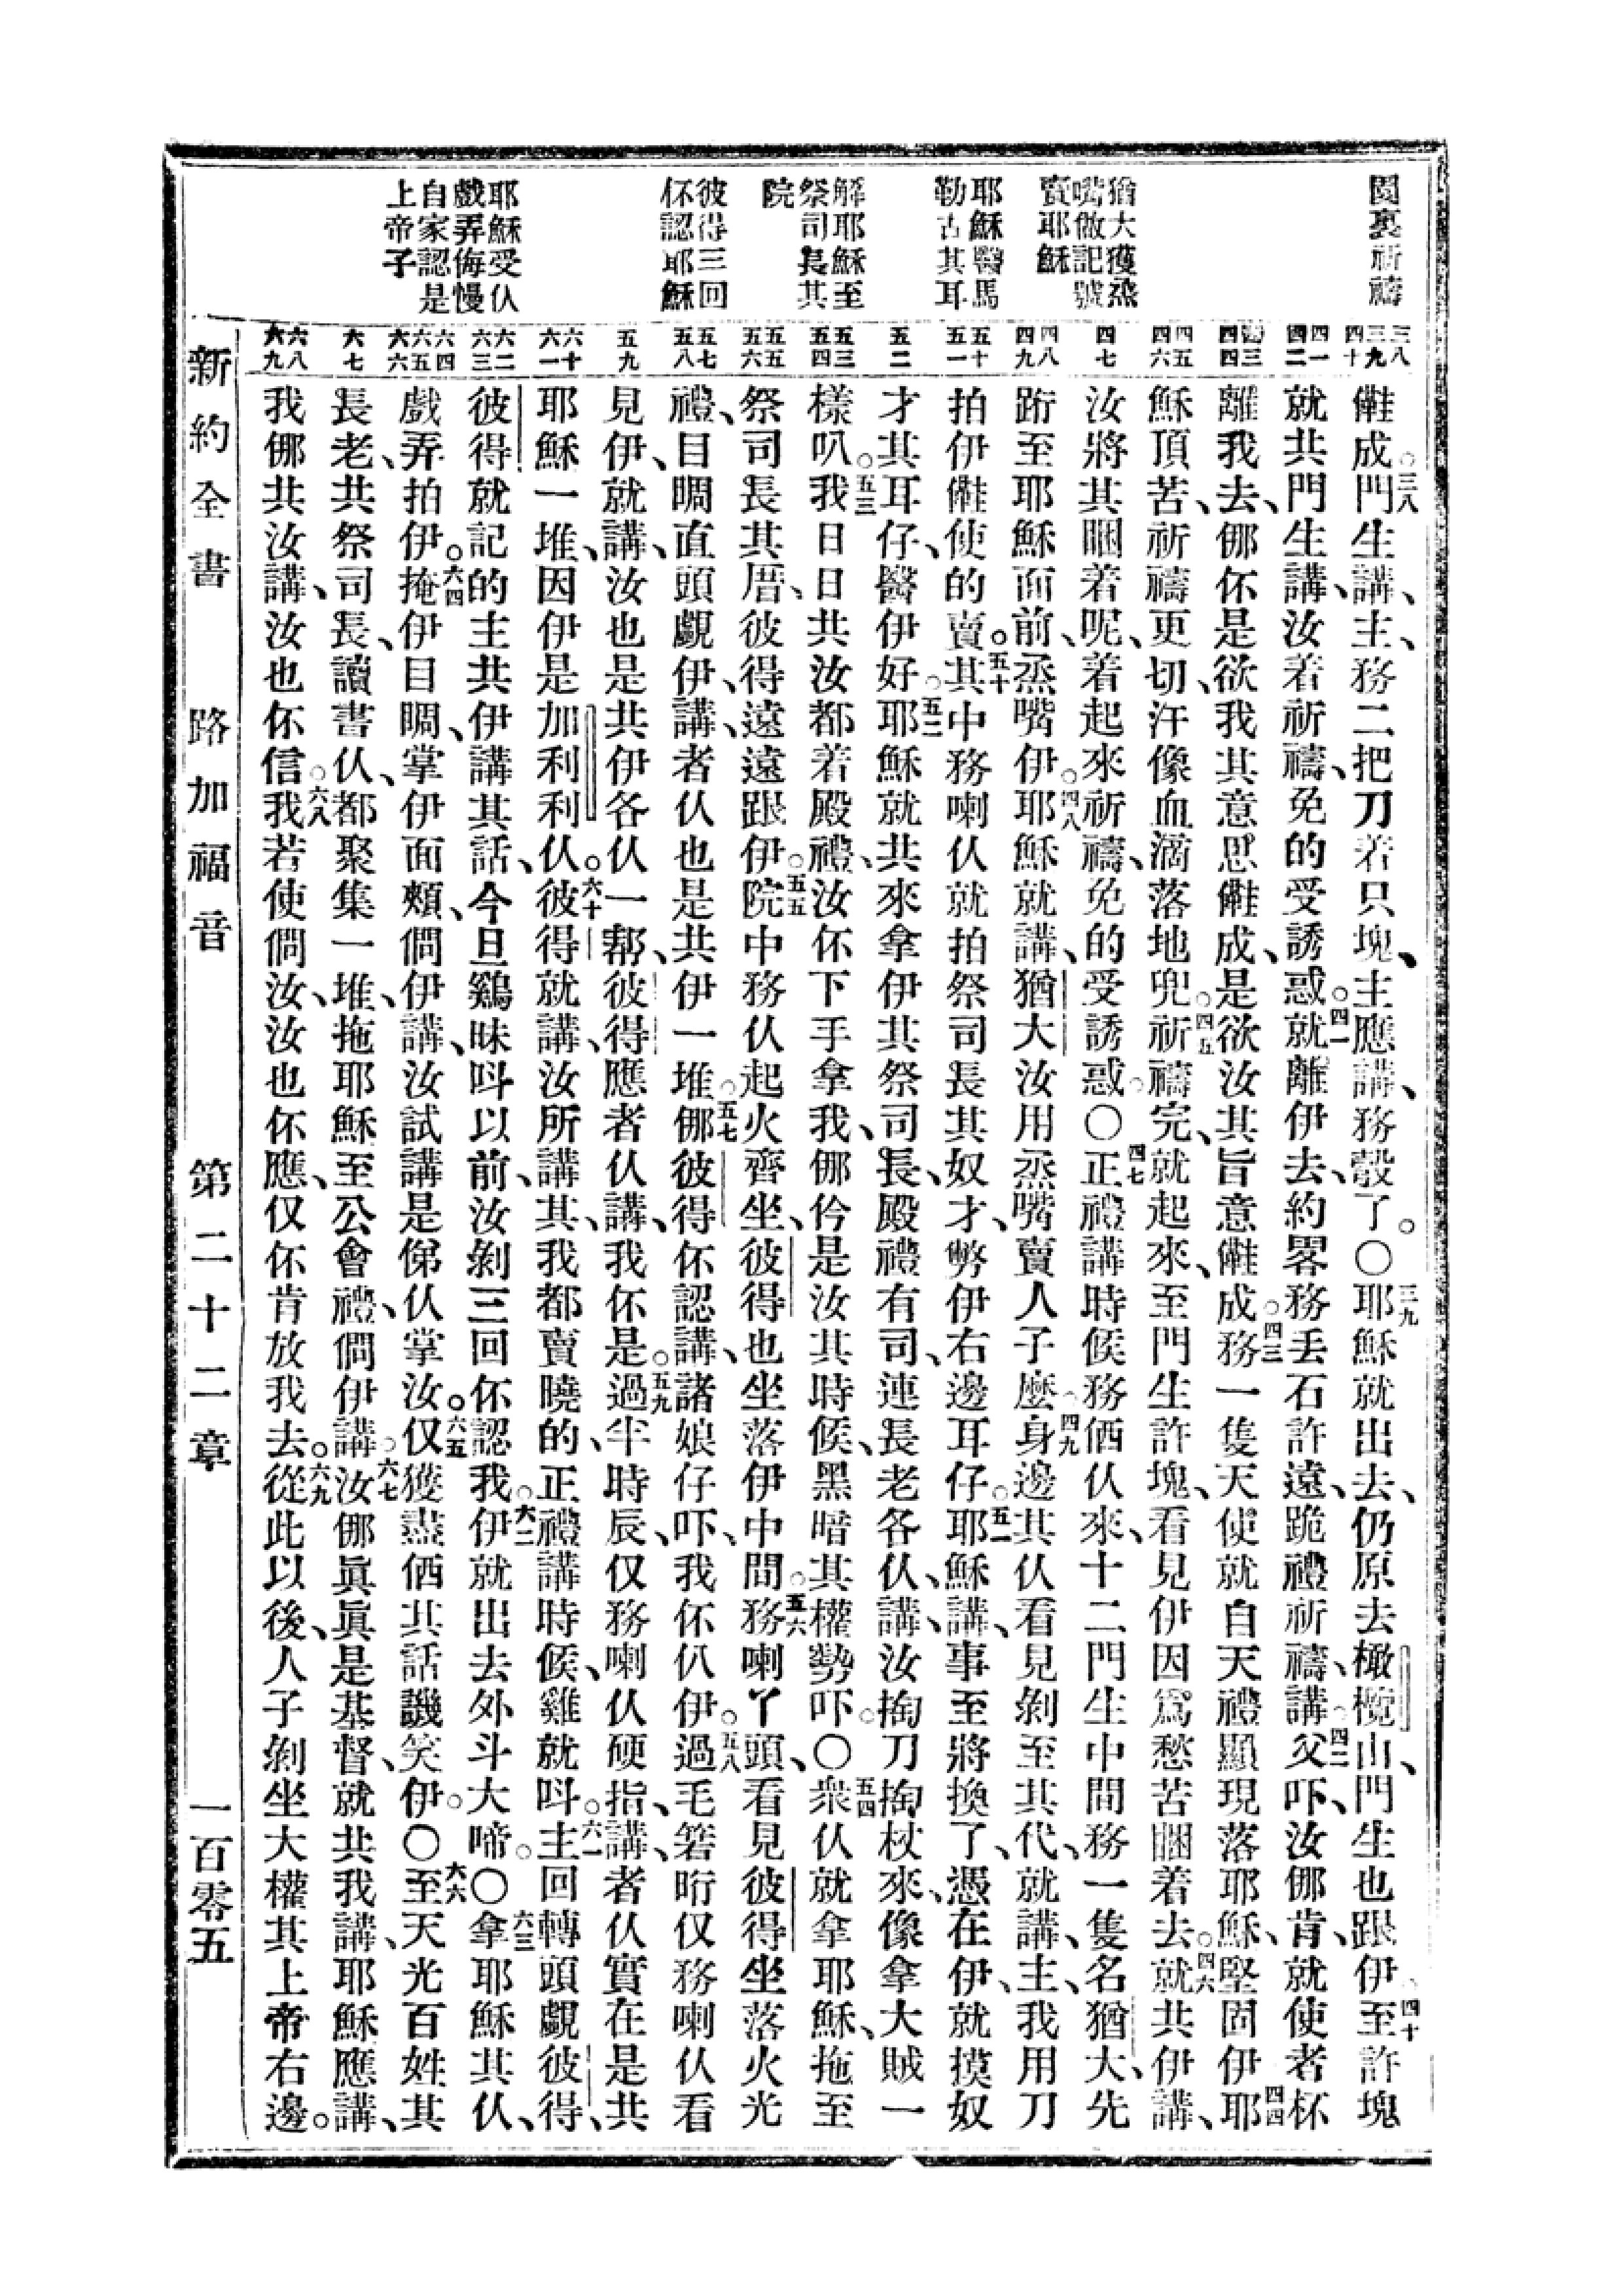 園裏祈禱
猶大獲烝
嘴做記號
賣耶穌
耶穌醫馬
勒古其耳
解耶穌至
祭司長其
院
彼得三回
伓認耶穌
耶穌受仈
戲弄侮慢
自家認是
上帝子
三八 三九 四十 四一 四二 四三 四四 四五 四六 四七 四八 四九 五十 五一 五二 五三 五四 五五 五六 五七 五八 五九 六十 六一 六二 六三 六四 六五 六六 六七 六八 六九
儺成。三八門生講、主、務二把刀若只塊、主應講、務彀了。〇三九耶穌就出去、仍原去橄欖山、門生也跟伊。四十至許塊
就共門生講、汝着祈禱、免的受誘惑。四一就離伊去、約畧務丢石許遠、跪禮祈禱、講。四二父吓、汝㑚肯、就使者杯
離我去、㑚伓是欲我其意思儺成、是欲汝其旨意儺成。四三務一隻天使就自天禮顯現落耶穌、堅固伊。四四耶
穌頂苦、祈禱更切、汗像血滴落地兜。四五祈禱完、就起來、至門生許塊、看見伊因為愁苦睏着去。四六就共伊講、
汝將其睏着呢、着起來祈禱、免的受誘惑。〇四七正禮講時候務価仈來、十二門生中間務一隻名猶大、先
跻至耶穌面前、烝嘴伊。四八耶穌就講、猶大汝用烝嘴賣人子麼。四九身邊其仈看見剝至其代、就講、主、我用刀
拍伊儺使的賣。五十其中務喇仈就拍祭司長其奴才、勞伊右邊耳仔。五一耶穌講、事至將換了、憑在伊、就摸奴
才其耳仔、醫伊好。五二耶穌就共來拿伊其祭司長、殿禮有司、連長老各仈、講、汝掏刀掏杖來、像拿大賊一
樣叭。五三我日日共汝都着殿禮、汝伓下手拿我、㑚仱是汝其時候、黑暗其權勢吓。〇五四衆仈就拿耶穌、拖至
祭司長其厝、彼得遠遠跟伊。五五院中務仈起火齊坐、彼得也坐落伊中間。五六務喇丫頭、看見彼得坐落火光
禮、目睭直頭覷伊、講、者仈也是共伊一堆。五七㑚彼得伓認講、諸娘仔吓、我伓仈伊。五八過毛箬昕仅務喇仈看
見伊、就講、汝也是共伊各仈一帮、彼得應者仈講、我伓是。五九過半時辰、仅務喇仈硬指、講、者仈實在是共
耶穌一堆、因伊是加利利仈。六十彼得就講、汝所講其、我都賣曉的、正禮講時候、雞就呌。六一主回轉頭覷彼得、
彼得就記的主共伊講其話、今旦鷄昧呌以前、汝剝三回伓認我。六二伊就出去外斗大啼。〇六三拿耶穌其仈、
戲弄拍伊。六四掩伊目睭、掌伊面頰、儞伊講、汝試講是俤仈掌汝。六五仅獲盡価其話譏笑伊。〇六六至天光百姓其
長老、共祭司長、讀書仈、都聚集一堆、拖耶穌至公會禮、儞伊講。六七汝㑚眞眞是基督、就共我講、耶穌應講、
我㑚共汝講、汝也伓信。六八我若使儞汝、汝也伓應、仅伓肯放我去。六九從此以後、人子剝坐大權其上帝右邊。
新約全書　路加福音　第二十二章　一百零五